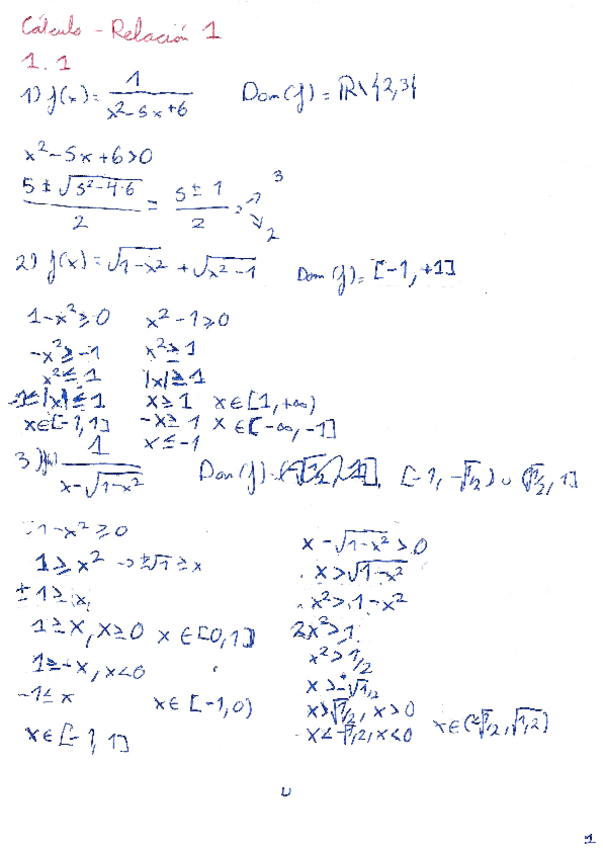 Cálculo - Relación 1
1.1
1) f(x) = 1/(x²-5x+6)   Dom(f) = ℝ\{2,3}
x²-5x+6>0
(5 ± √(5²-4·6))/2 = (5 ± 1)/2 → 3
→ 2
2) f(x) = √(1-x²) + √(x²-1)   Dom(f) = [-1,+1]
1-x² ≥ 0   x²-1 ≥ 0
-x² ≥ -1   x² ≥ 1
x² ≤ 1   |x| ≥ 1
-1 ≤ |x| ≤ 1   x ≥ 1   x ∈ [1,+∞)
x ∈ [-1,1]   -x ≥ 1   x ∈ [-∞,-1]
x ≤ -1
3) 1/(x-√(1-x²))   Dom(f) = [-1,-√1/2) ∪ (√1/2,1]
1-x² ≥ 0   x-√(1-x²) > 0
1 ≥ x² → ±√1 ≥ x   x > √(1-x²)
±1 ≥ x   x² > 1-x²
1 ≥ x, x ≥ 0   x ∈ [0,1]   2x² > 1
1 ≥ -x, x < 0   x² > 1/2
-1 ≤ x   x ∈ [-1,0)   x > ±√1/2
x > √1/2, x > 0
x ∈ [-1,1]   x < -√1/2, x < 0   x ∈ (-√1/2,√1/2)
1